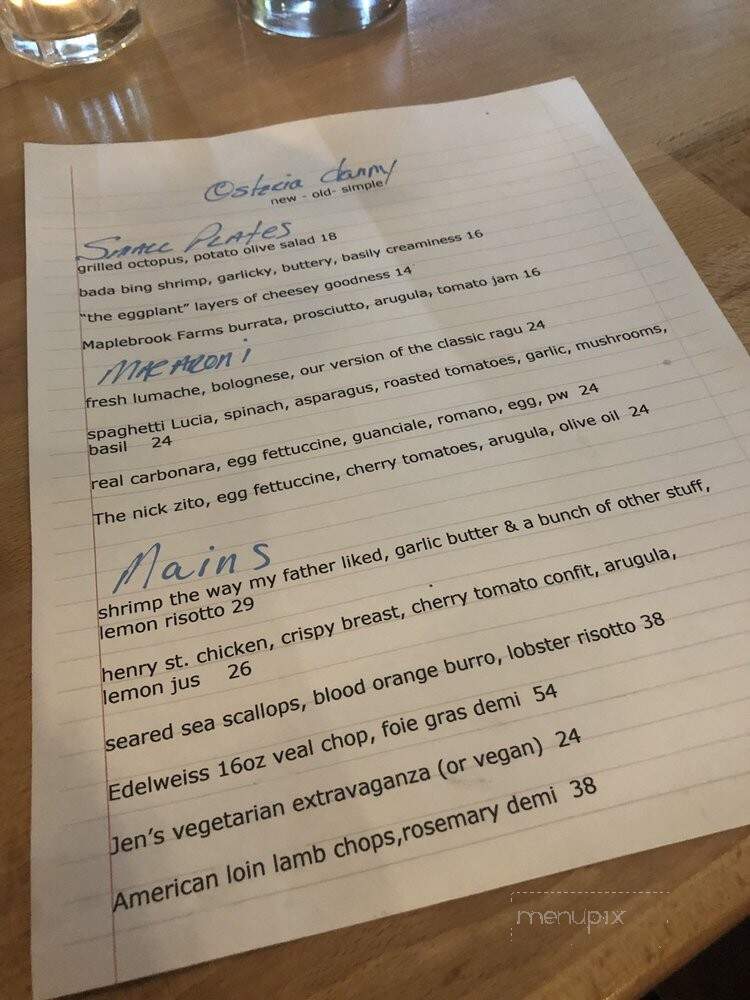 Osteria danny
new - old- simple
SMALL PLATES
grilled octopus, potato olive salad 18
bada bing shrimp, garlicky, buttery, basily creaminess 16
"the eggplant" layers of cheesey goodness 14
Maplebrook Farms burrata, prosciutto, arugula, tomato jam 16
MACARONI
fresh lumache, bolognese, our version of the classic ragu 24
spaghetti Lucia, spinach, asparagus, roasted tomatoes, garlic, mushrooms,
basil 24
real carbonara, egg fettuccine, guanciale, romano, egg, pw 24
The nick zito, egg fettuccine, cherry tomatoes, arugula, olive oil 24
Mains
shrimp the way my father liked, garlic butter & a bunch of other stuff,
lemon risotto 29
henry st. chicken, crispy breast, cherry tomato confit, arugula,
lemon jus 26
seared sea scallops, blood orange burro, lobster risotto 38
Edelweiss 16oz veal chop, foie gras demi 54
Jen's vegetarian extravaganza (or vegan) 24
American loin lamb chops,rosemary demi 38
menupix